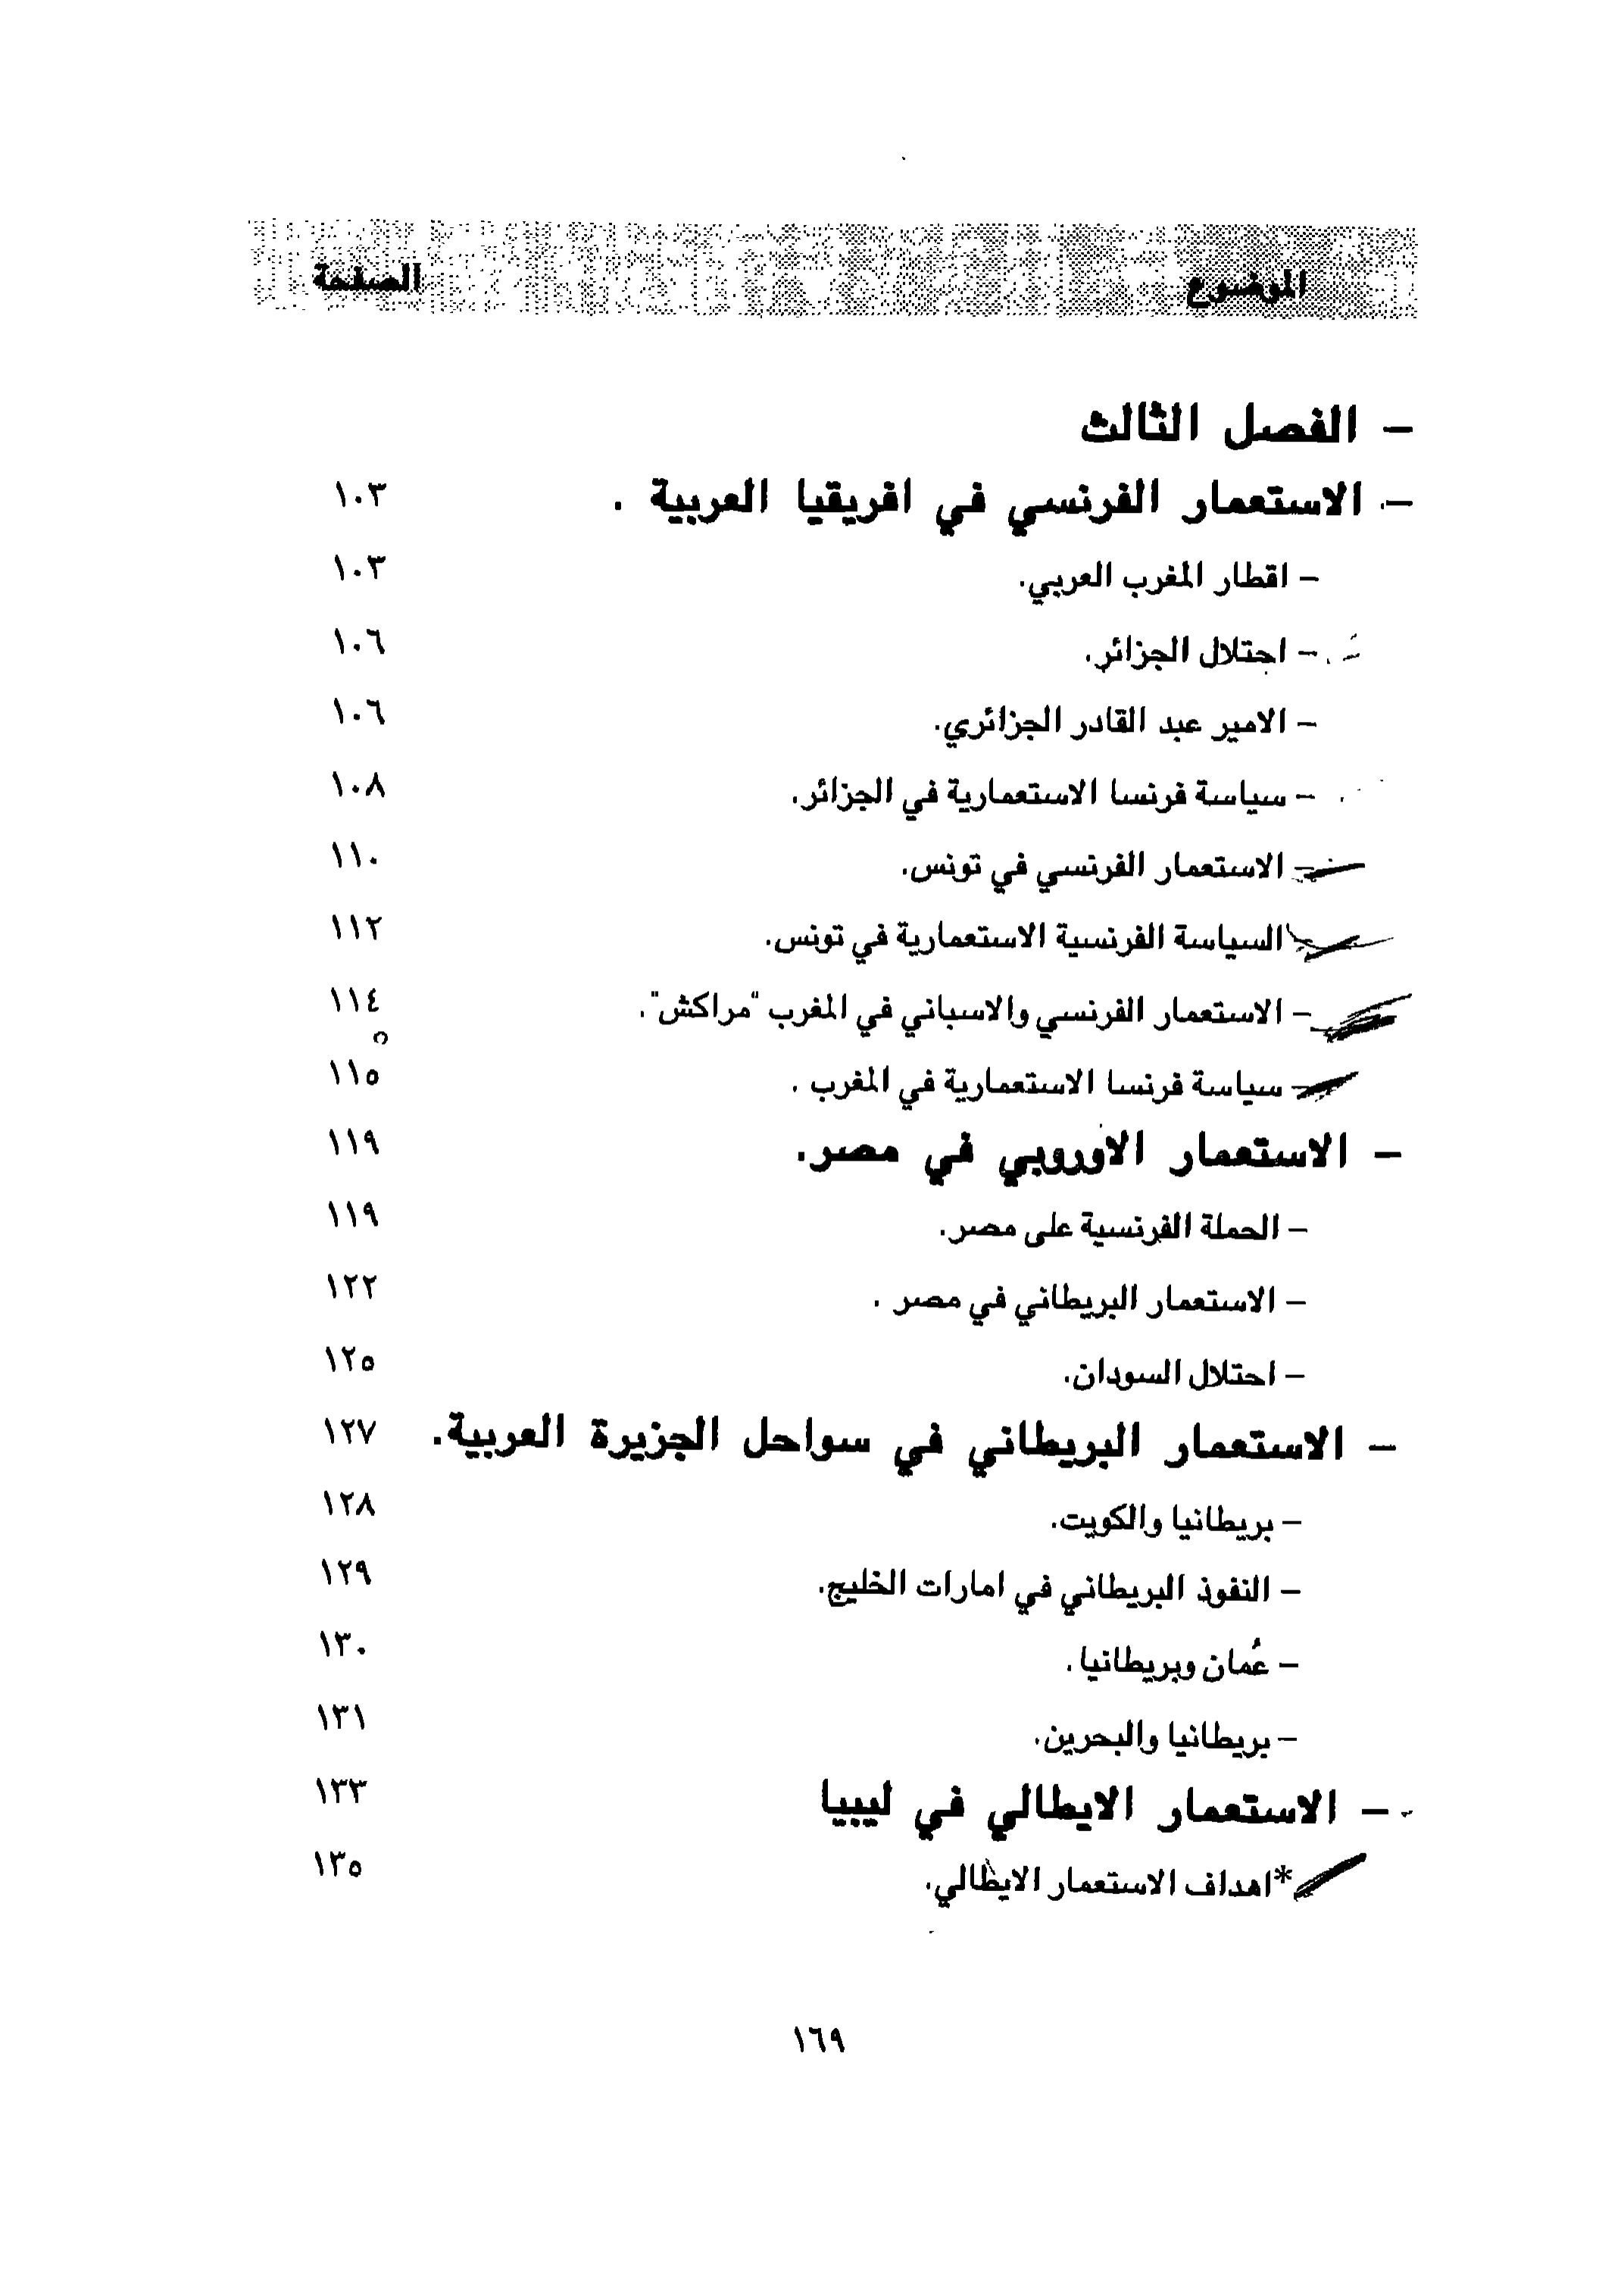 الموضوع الصفحة
– الفصل الثالث
– الاستعمار الفرنسي في افريقيا العربية . ١٠٣
– اقطار المغرب العربي. ١٠٣
– احتلال الجزائر. ١٠٦
– الامير عبد القادر الجزائري. ١٠٦
– سياسة فرنسا الاستعمارية في الجزائر. ١٠٨
– الاستعمار الفرنسي في تونس. ١١٠
– السياسة الفرنسية الاستعمارية في تونس. ١١٢
– الاستعمار الفرنسي والاسباني في المغرب "مراكش". ١١٤
– سياسة فرنسا الاستعمارية في المغرب . ١١٥
– الاستعمار الاوروبي في مصر. ١١٩
– الحملة الفرنسية على مصر. ١١٩
– الاستعمار البريطاني في مصر . ١٢٢
– احتلال السودان. ١٢٥
– الاستعمار البريطاني في سواحل الجزيرة العربية. ١٢٧
– بريطانيا والكويت. ١٢٨
– النفوذ البريطاني في امارات الخليج. ١٢٩
– عُمان وبريطانيا. ١٣٠
– بريطانيا والبحرين. ١٣١
– الاستعمار الايطالي في ليبيا ١٣٣
*اهداف الاستعمار الايطالي. ١٣٥
١٦٩